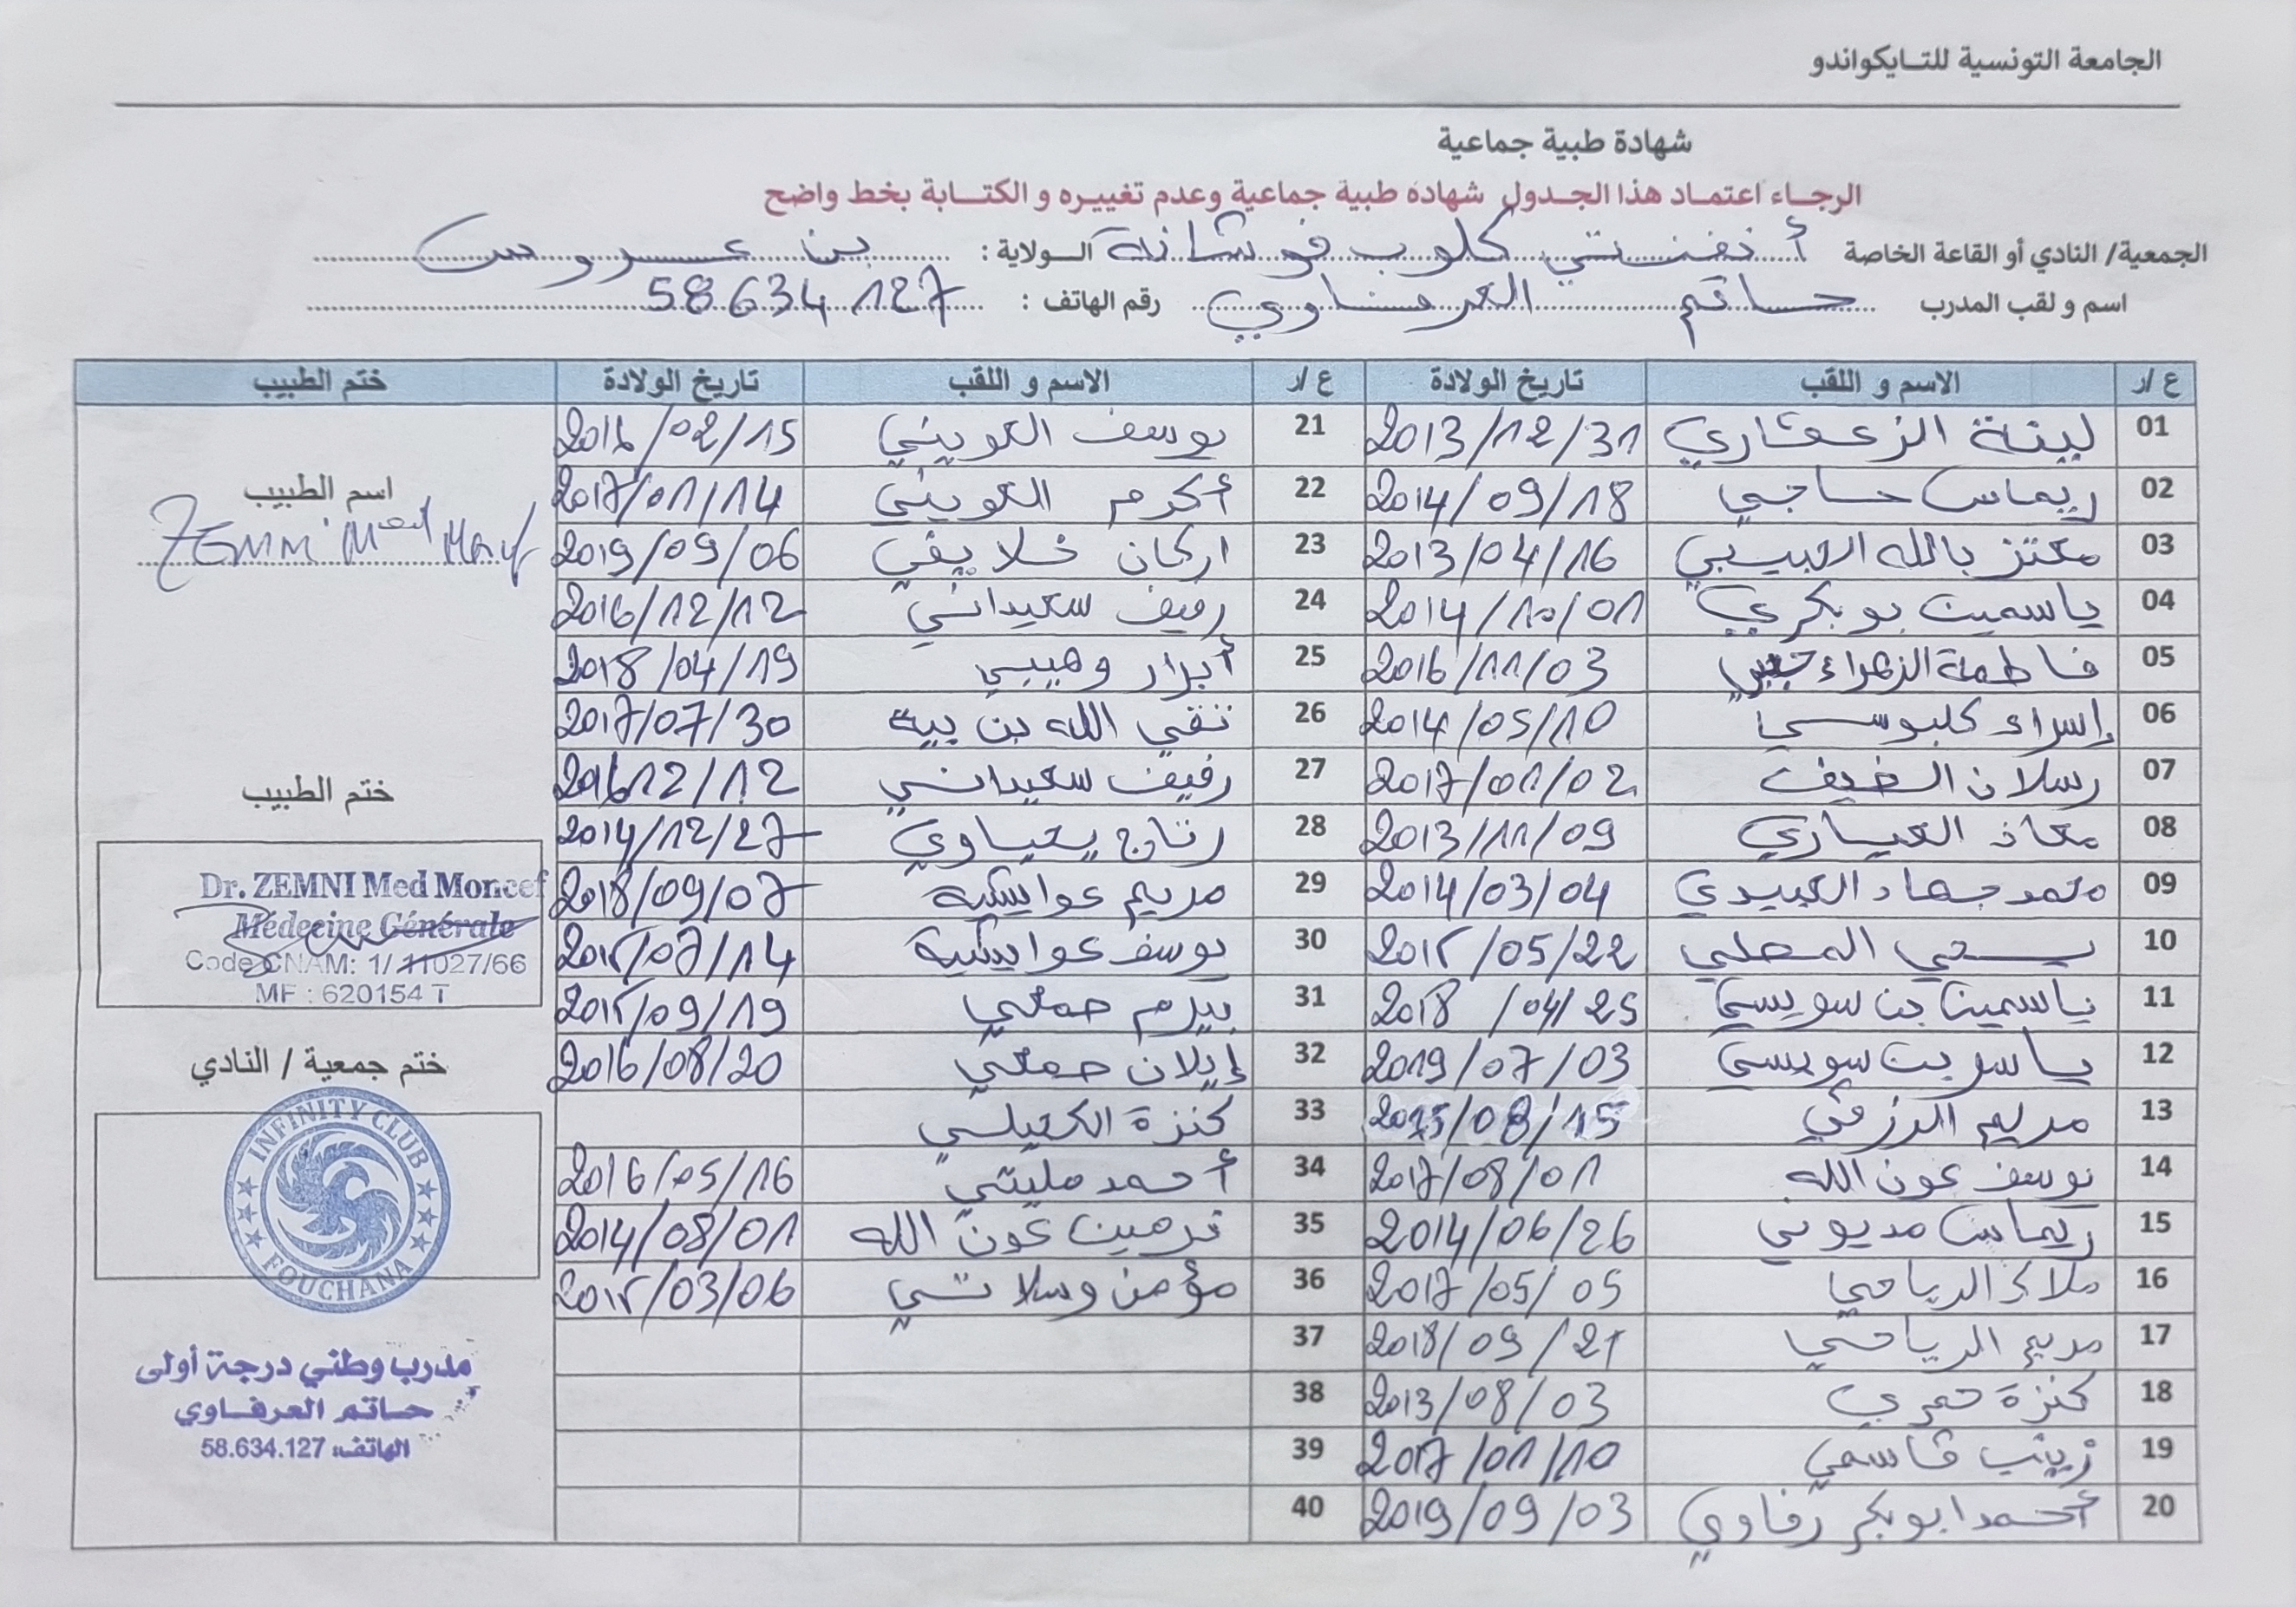 الجامعة التونسية للتــايكواندو
شهادة طبية جماعية
الرجــاء اعتمــاد هذا الجـدول شهادة طبية جماعية وعدم تغييـره و الكتــابة بخط واضح
الجمعية/ النادي أو القاعة الخاصة أنفينتي كلوب فوشانة الـولاية : بن عروس
اسم و لقب المدرب حاتم العرفاوي رقم الهاتف : 58634127
ع /ر الاسم و اللقب تاريخ الولادة ع /ر الاسم و اللقب تاريخ الولادة ختم الطبيب
01 لينة الزعقاري 2013/12/31 21 يوسف العويني 2016/02/15
02 ريماس حاجي 2014/09/18 22 أكرم العويني 2017/01/14
اسم الطبيب
ZEMNI Med
03 معتز بالله العبيبي 2013/04/16 23 اركان خلايفي 2019/09/06
04 ياسمين بوبكري 2014/10/01 24 رفيف سعيداني 2016/12/12
05 فاطمة الزهراء 2016/11/03 25 أبرار وهيبي 2018/04/19
06 إسراء كلبوسي 2014/05/10 26 تقي الله بن بية 2017/07/30
07 رسلان الضيف 2017/01/02 27 رفيف سعيداني 201612/12
ختم الطبيب
08 معاذ العياري 2013/11/09 28 رتاج يحياوي 2014/12/27
09 محمد جهاد العبيدي 2014/03/04 29 مريم عوايشية 2018/09/07
Dr. ZEMNI Med Moncef
Médecine Générale
Code CNAM: 1/ 11027/66
MF : 620154 T
10 يحي المحلي 2015/05/22 30 يوسف عوايشية 2015/07/14
11 ياسمين بن سويسي 2018/04/25 31 بيرم حمعي 2015/09/19
12 ياسر بن سويسي 2019/07/03 32 إيلان حمعي 2016/08/20
ختم جمعية / النادي
13 مريم الرزقي 2015/08/15 33 كنزة الكحيلي
14 يوسف عون الله 2017/08/01 34 أحمد مليتي 2016/05/16
15 ريماس مديوني 2014/06/26 35 نرمين عون الله 2014/08/01
INFINITY CLUB
FOUCHANA
16 ملاك الرياحي 2017/05/05 36 مؤمن وسلاتي 2015/03/06
17 مريم الرياحي 2018/09/21 37
18 كنزة عمري 2013/08/03 38
19 زينب قاسمي 2017/01/10 39
20 أحمد ابوبكر رفاوي 2019/09/03 40
مدرب وطني درجة أولى
حـاتم العرفـاوي
الهاتف: 58.634.127